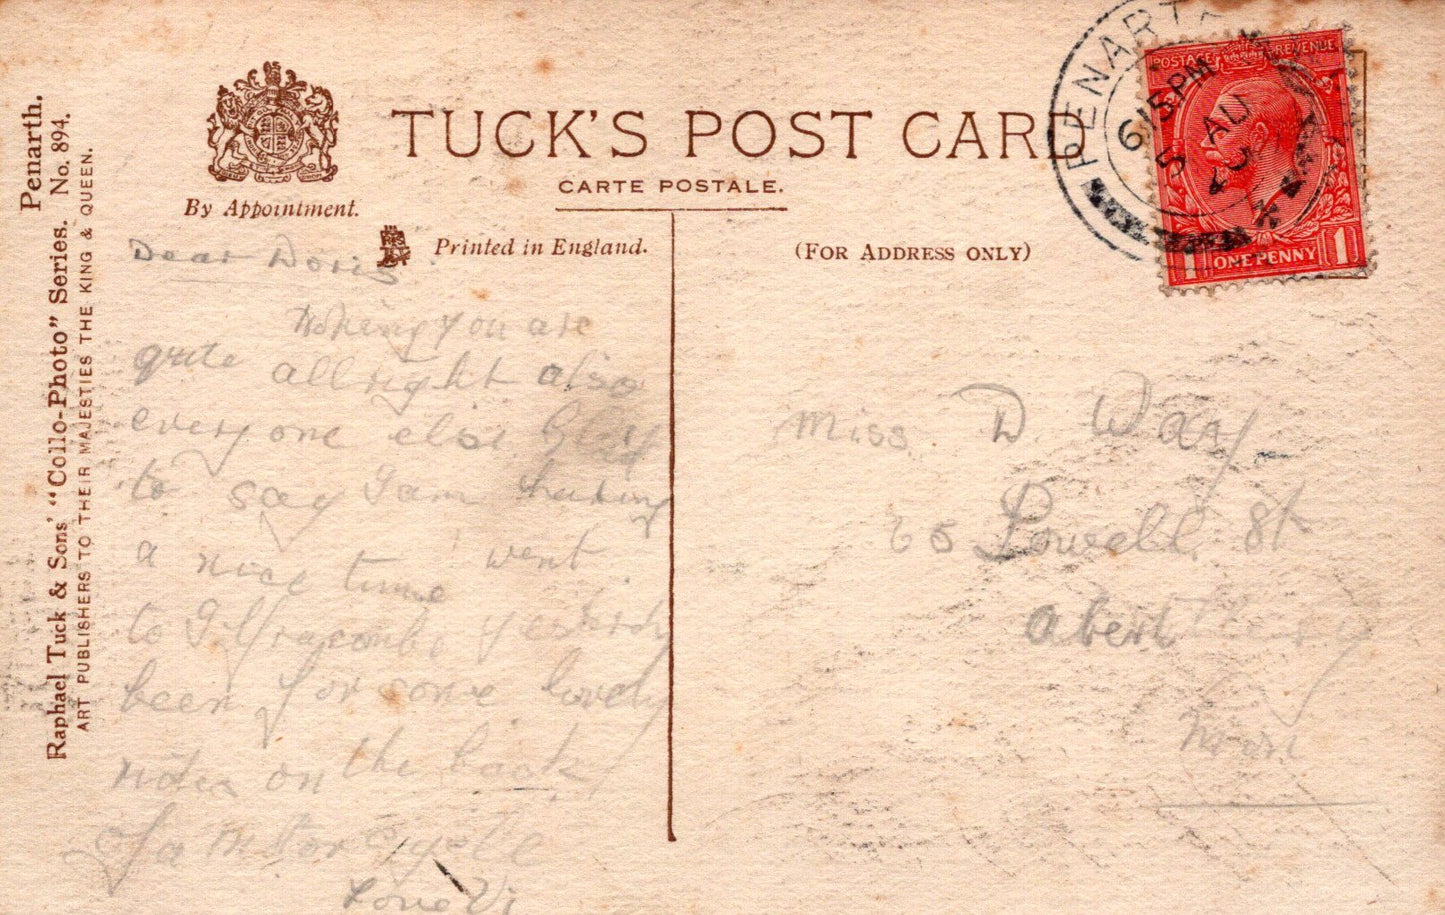 Penarth.
Raphael Tuck & Sons' "Collo-Photo" Series. No. 894.
ART PUBLISHERS TO THEIR MAJESTIES THE KING & QUEEN.
By Appointment.
TUCK'S POST CARD
CARTE POSTALE.
Printed in England.
(FOR ADDRESS ONLY)
PENARTH
615PM
5 AU
POSTAGE REVENUE
1 ONE PENNY 1
Dear Doris
Hoping you are
quite allright also
everyone else Glad
to say I am having
a nice time I went
to Ilfracombe yesterdy
been for some lovely
rides on the back
of a motor cycle
Love Vi
Miss D Way
65 Powell St
Abertillery
Mon